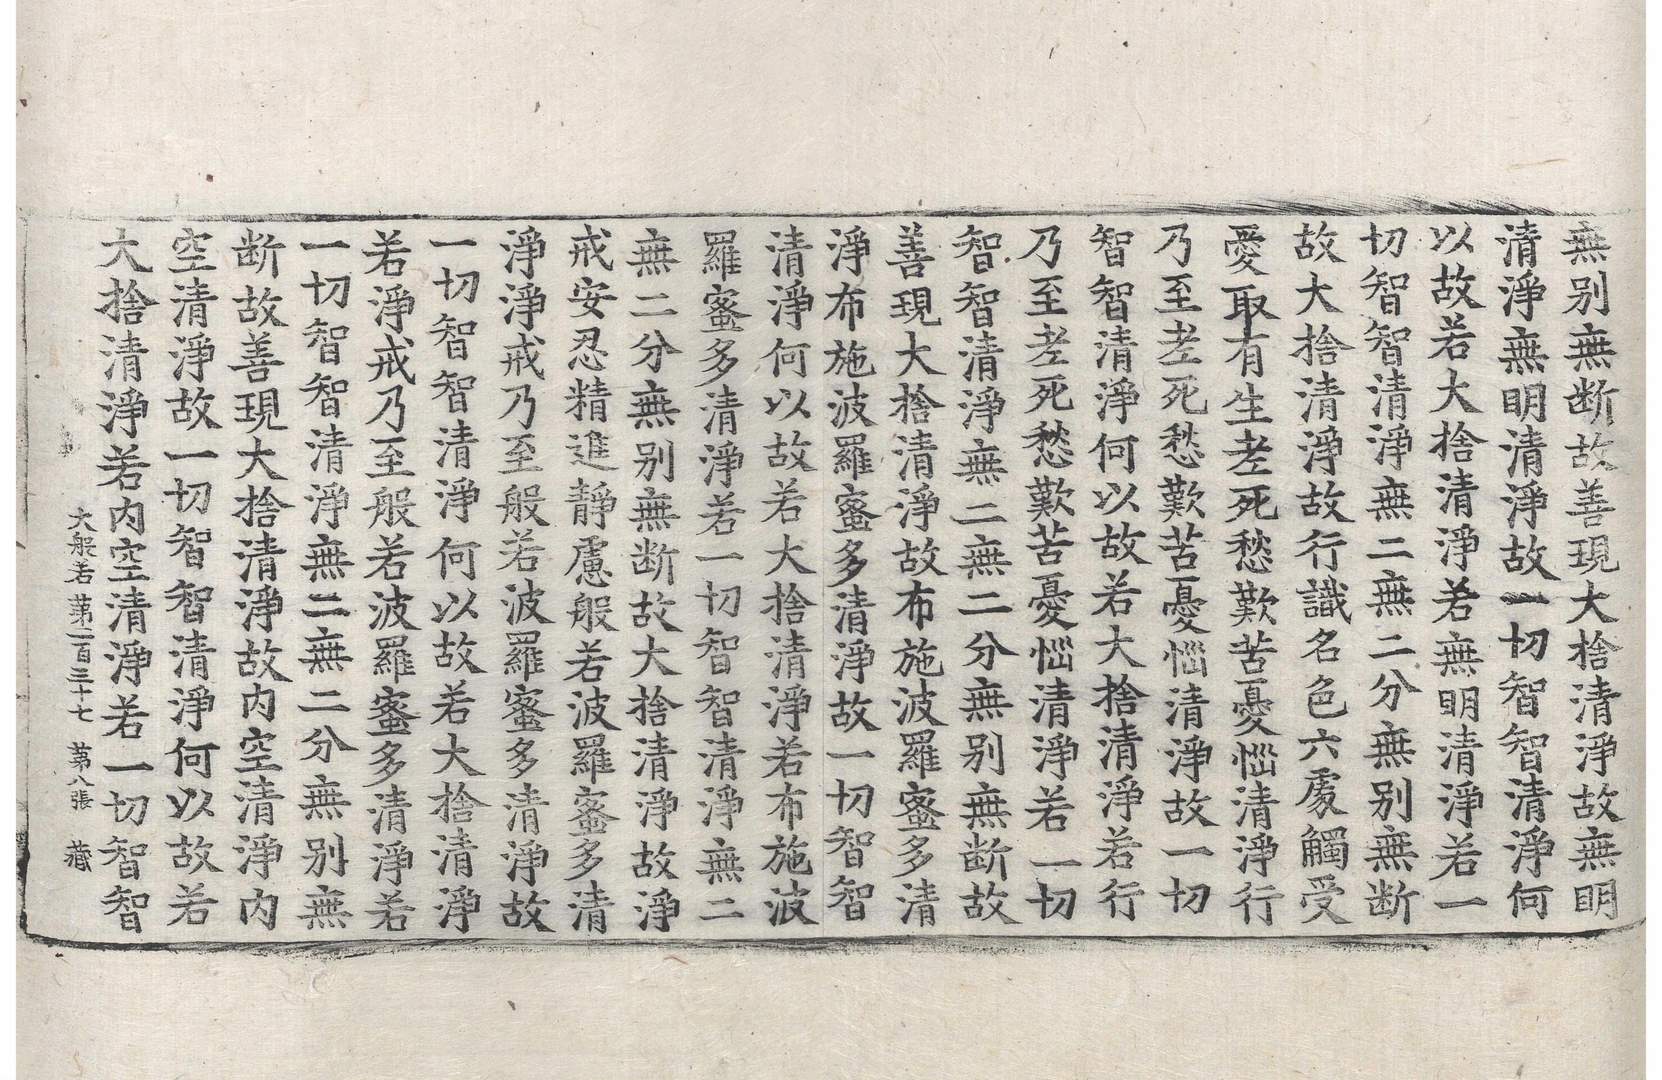 無别無断故善現大捨清淨故無明
清淨無明清淨故一切智智清淨何
以故若大捨清淨若無明清淨若一
切智智清淨無二無二分無别無断
故大捨清淨故行識名色六處觸受
愛取有生老死愁歎苦憂惱清淨行
乃至老死愁歎苦憂惱清淨故一切
智智清淨何以故若大捨清淨若行
乃至老死愁歎苦憂惱清淨若一切
智智清淨無二無二分無别無断故
善現大捨清淨故布施波羅蜜多清
淨布施波羅蜜多清淨故一切智智
清淨何以故若大捨清淨若布施波
羅蜜多清淨若一切智智清淨無二
無二分無别無断故大捨清淨故淨
戒安忍精進靜慮般若波羅蜜多清
淨淨戒乃至般若波羅蜜多清淨故
一切智智清淨何以故若大捨清淨
若淨戒乃至般若波羅蜜多清淨若
一切智智清淨無二無二分無别無
断故善現大捨清淨故内空清淨内
空清淨故一切智智清淨何以故若
大捨清淨若内空清淨若一切智智
大般若第二百三十七 第八張 藏